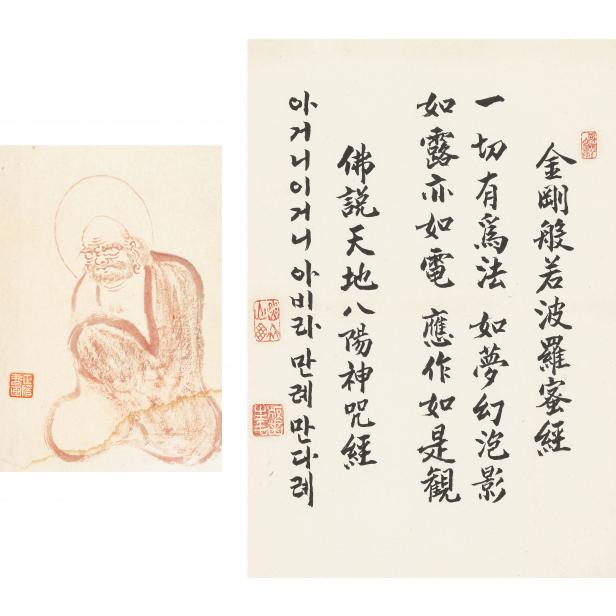 金剛般若波羅蜜經
一切有爲法 如夢幻泡影
如露亦如電 應作如是観
佛説天地八陽神呪經
아거니이거니 아비라 만례 만다례